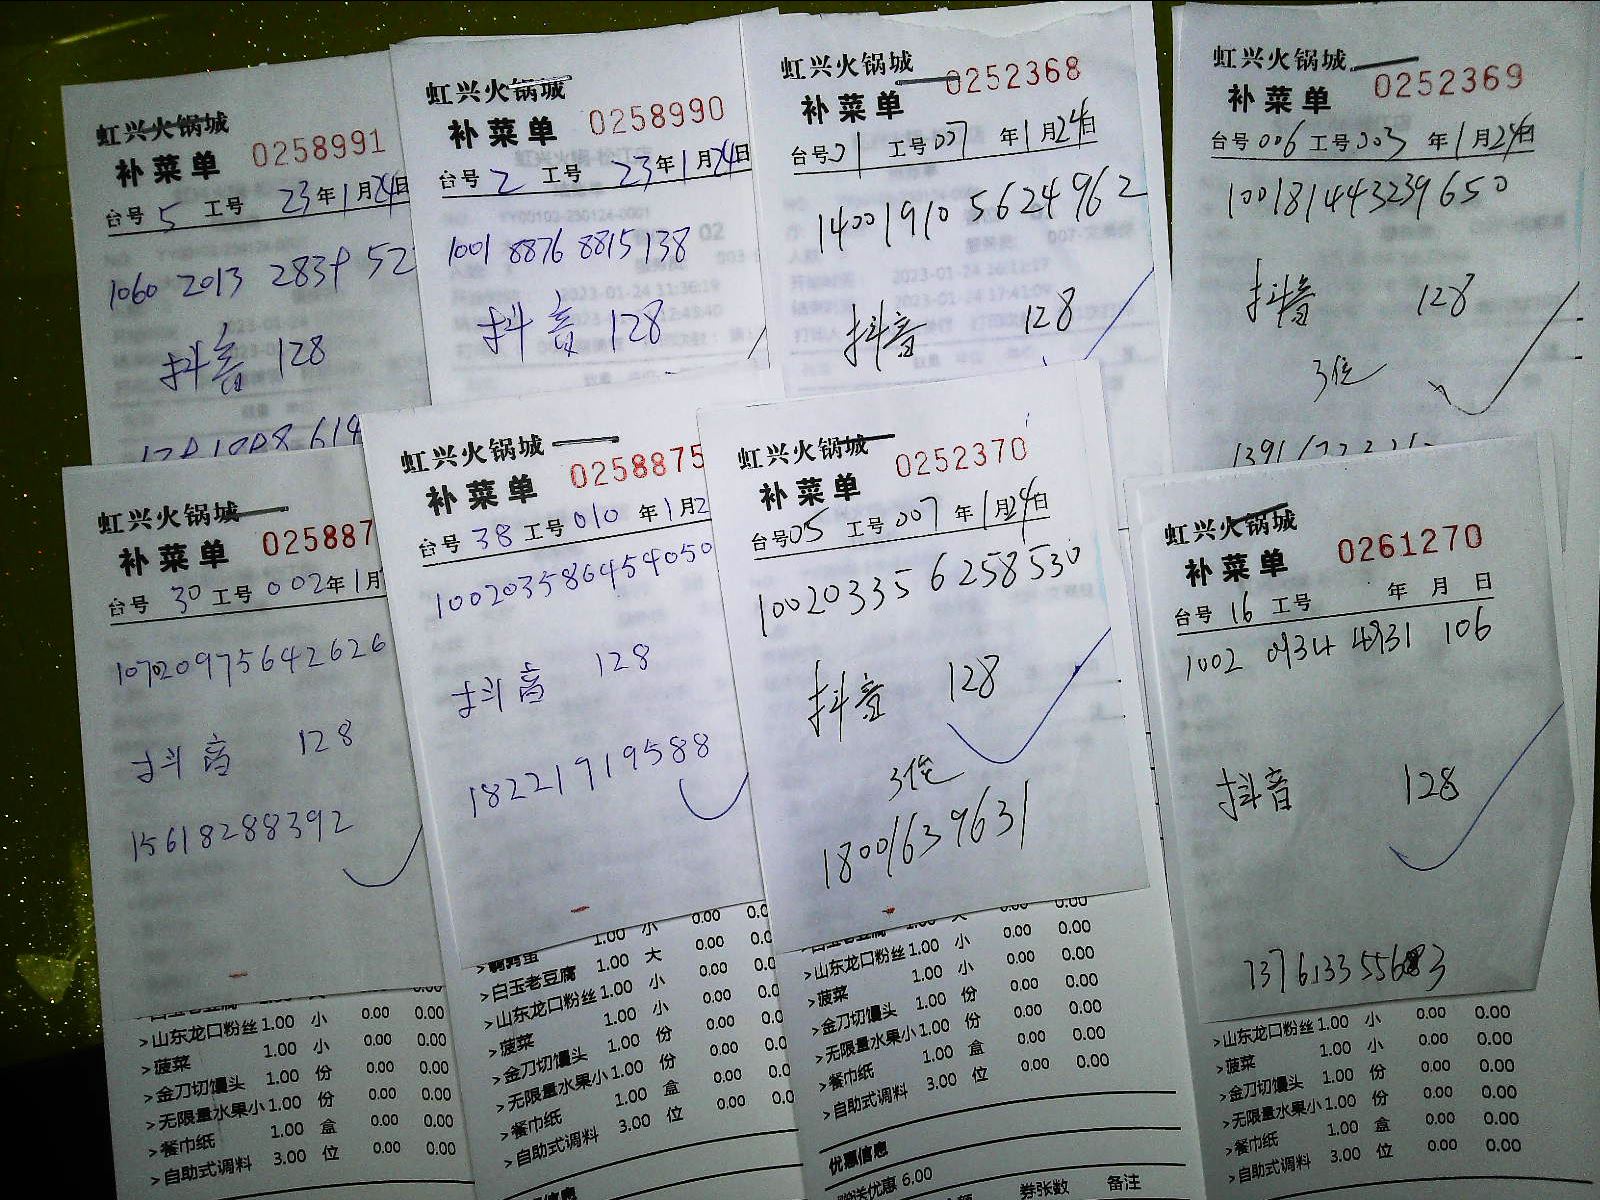 虹兴火锅城
补菜单 0258991
台号 5 工号 23年1月24日
抖音 128
虹兴火锅城
补菜单 0258990
台号 2 工号 23年1月24日
1001 8876 8815138
抖音 128
虹兴火锅城
补菜单 0252368
台号01 工号007 年1月24日
14001910 5624962
抖音 128
虹兴火锅城
补菜单 0252369
台号006工号003 年1月24日
100181443239650
抖音 128
3位
虹兴火锅城
补菜单 025887
台号 30 工号 002年1月
107020975642626
抖音 128
15618288392
>山东龙口粉丝1.00 小 0.00 0.00
>菠菜 1.00 小 0.00 0.00
>金刀切馒头 1.00 份 0.00 0.00
>无限量水果小1.00 份 0.00 0.00
>餐巾纸 1.00 盒 0.00 0.00
>自助式调料 3.00 位 0.00 0.00
虹兴火锅城
补菜单 0258875
台号 38 工号010 年1月2
100203586454050
抖音 128
18221919588
1.00 小 0.00
>白玉老豆腐 1.00 大 0.00
>山东龙口粉丝1.00 小 0.00
>菠菜 1.00 小 0.00
>金刀切馒头 1.00 份 0.00
>无限量水果小1.00 份 0.00
>餐巾纸 1.00 盒 0.00
>自助式调料 3.00 位 0.00
虹兴火锅城
补菜单 0252370
台号05 工号007 年1月24日
10020335 6258530
抖音 128
3位
18001639631
>山东龙口粉丝1.00 小 0.00 0.00
>菠菜 1.00 小 0.00 0.00
>金刀切馒头 1.00 份 0.00 0.00
>无限量水果小1.00 份 0.00 0.00
>餐巾纸 1.00 盒 0.00 0.00
>自助式调料 3.00 位 0.00 0.00
优惠信息
赠送优惠 6.00
券张数 备注
虹兴火锅城
补菜单 0261270
台号 16 工号 年 月 日
1002 0934 4931 106
抖音 128
>山东龙口粉丝1.00 小 0.00 0.00
>菠菜 1.00 小 0.00 0.00
>金刀切馒头 1.00 份 0.00 0.00
>无限量水果小1.00 份 0.00 0.00
>餐巾纸 1.00 盒 0.00 0.00
>自助式调料 3.00 位 0.00 0.00